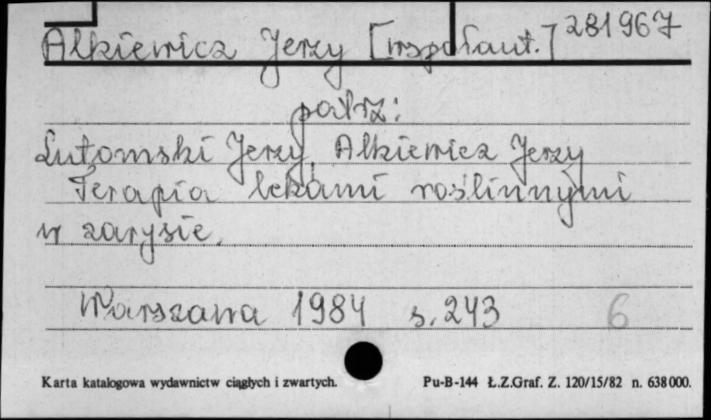 Alkiewicz Jerzy [współaut.] 281967
patrz:
Lutomski Jerzy, Alkiewicz Jerzy
Terapia lekami roślinnymi
w zarysie.
Warszawa 1984 s. 243 6
Karta katalogowa wydawnictw ciągłych i zwartych. Pu-B-144 Ł.Z.Graf. Z. 120/15/82 n. 638000.